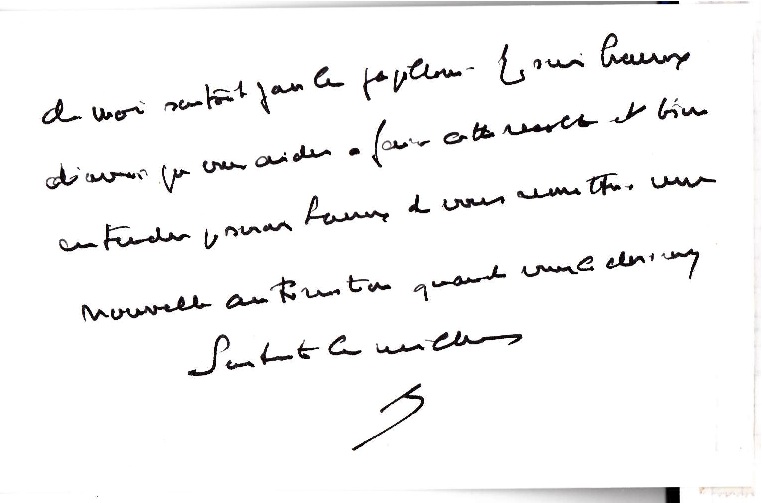 de moi surtout pour les papillons. Je suis heureux
d'avoir pu vous aider à faire cette récolte et bien
entendu je serais heureux de vous remettre une
nouvelle autorisation quand vous le désirerez